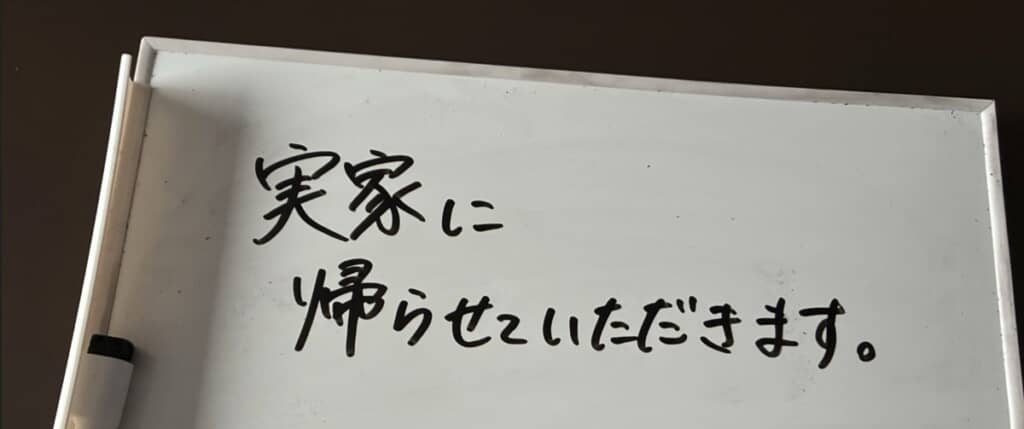 実家に
帰らせていただきます。